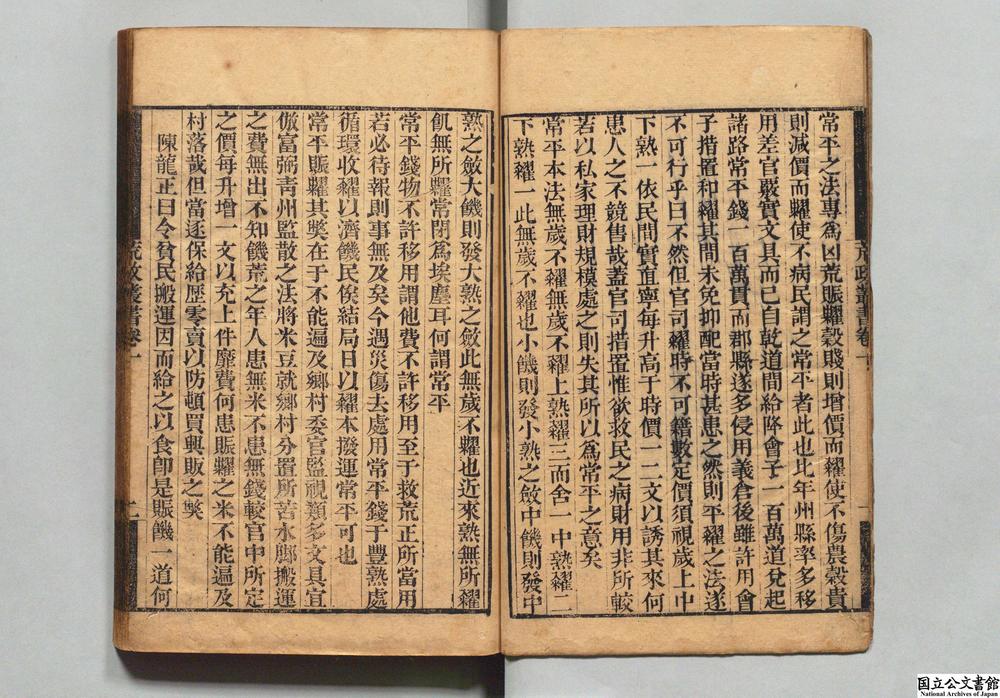 常平之法專爲凶荒賑糶穀賤則增價而糴使不傷農穀貴
則減價而糶使不病民謂之常平者此也比年州縣率多移
用差官覈實文具而已自乾道間給降會子一百萬道兌起
諸路常平錢一百萬貫而郡縣遂多侵用義倉後雖許用會
子措置和糴其間未免抑配當時甚患之然則平糴之法遂
不可行乎曰不然但官司糴時不可籍數定價須視歲上中
下熟一依民間實直寧每升高于時價一二文以誘其來何
患人之不競售哉蓋官司措置惟欲救民之病財用非所較
若以私家理財規模處之則失其所以爲常平之意矣
常平本法無歲不糴無歲不糶上熟糴三而舍一中熟糴二
下熟糴一此無歲不糴也小饑則發小熟之斂中饑則發中
荒政叢書卷一
熟之斂大饑則發大熟之斂此無歲不糶也近來熟無所糴
飢無所糶常閉爲埃塵耳何謂常平
常平錢物不許移用謂他費不許移用至于救荒正所當用
若必待報則事無及矣今遇災傷去處用常平錢于豐熟處
循環收糴以濟饑民俟結局日以糴本撥運常平可也
常平賑糶其獘在于不能遍及鄉村委官監視類多文具宜
倣富弼青州監散之法將米豆就鄉村分置所苦水脚搬運
之費無出不知饑荒之年人患無米不患無錢較官中所定
之價每升增一文以充上件靡費何患賑糶之米不能遍及
村落哉但當逐保給歷零賣以防頓買興販之獘
陳龍正曰令貧民搬運因而給之以食卽是賑饑一道何
荒政叢書卷一
二
国立公文書館
National Archives of Japan